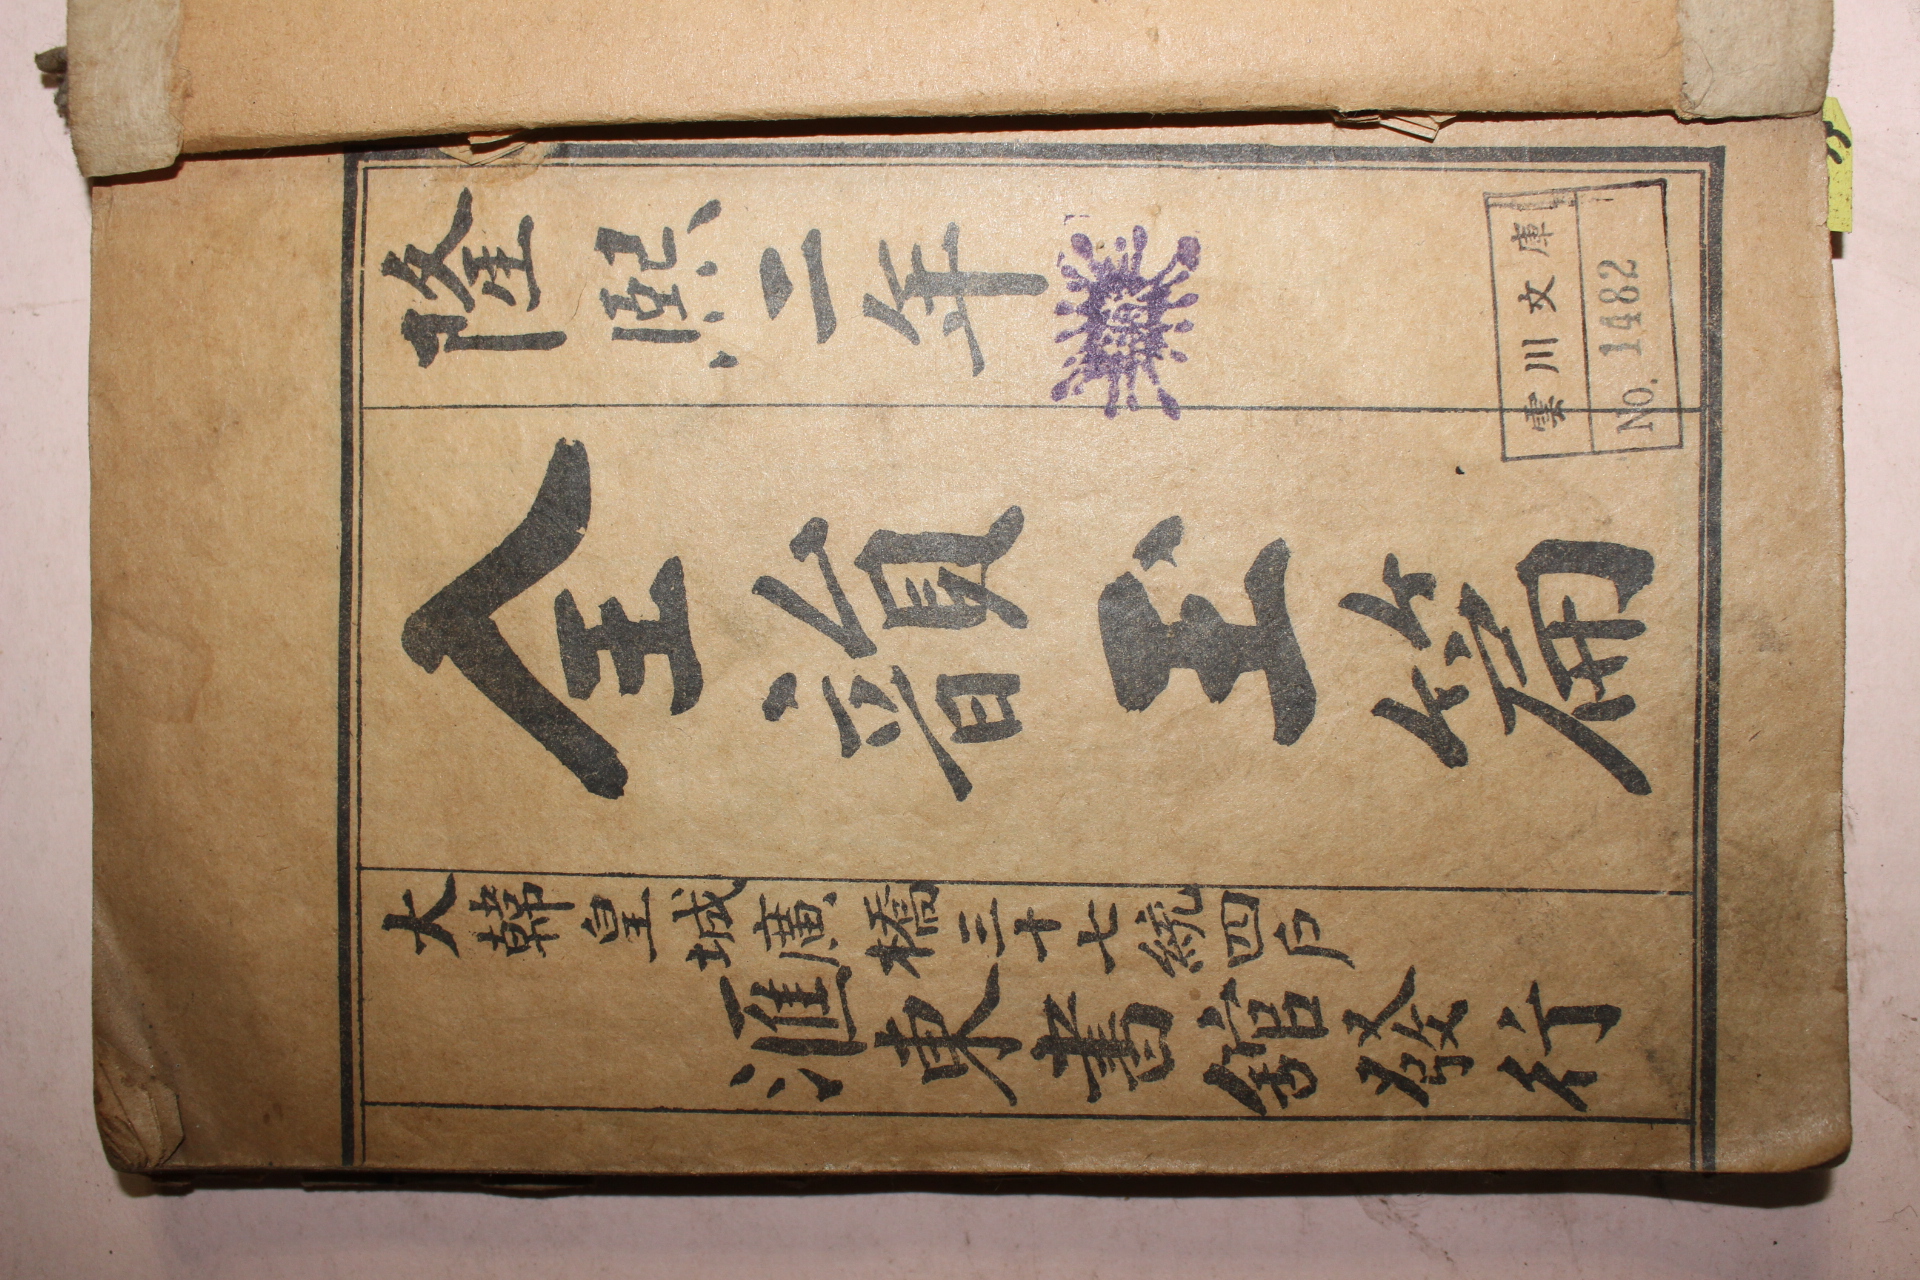 隆熙二年
全韻玉篇
大韓皇城廣橋三十七統四戶
滙東書館發行
雲川文庫
No. 1482